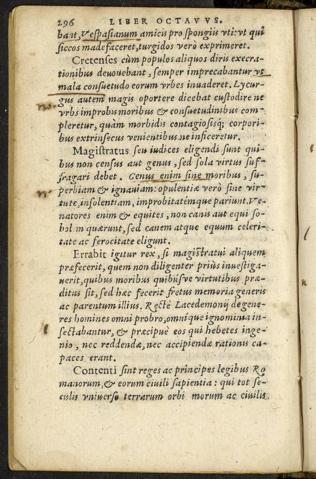 296 LIBER OCTAVVS.
bant, Vespasianum amicis pro spongiis vti: vt qui
siccos madefaceret, turgidos verò exprimeret.
Cretenses cùm populos aliquos diris execra-
tionibus deuouebant, semper imprecabantur vt
mala consuetudo eorum vrbes inuaderet. Lycur-
gus autem magis oportere dicebat custodire ne
vrbs improbis moribus & consuetudinibus com-
pleretur, quàm morbidis contagiosisq; corpori-
bus extrinsecus venientibus ne inficeretur.
Magistratus seu iudices eligendi sunt quibus
non census aut genus, sed sola virtus suf-
fragari debet. Genus enim sine moribus, su-
perbiam & ignauiam: opulentiæ verò sine vir-
tute, insolentiam, improbitatémque pariunt. Ve-
natores enim & equites, non canis aut equi sobo-
lem quærunt, sed canem atque equum celeri-
tate ac ferocitate eligunt.
Errabit igitur rex, si magistratui aliquem
præfecerit, quem non diligenter priùs inuestiga-
uerit, quibus moribus quibúsve virtutibus præ-
ditus sit, sed hæc fecerit fretus memoria generis
ac parentum illius. Rectè Lacedemonij degene-
res homines omni probro, omnique ignominia in-
sectabantur, & præcipuè eos qui hebetes inge-
nio, nec reddendæ, nec accipiendæ rationis ca-
paces erant.
Contenti sint reges ac principes legibus Ro
manorum, & eorum ciuili sapientia: qui tot se-
culis vniuerso terrarum orbi morum ac ciuilis